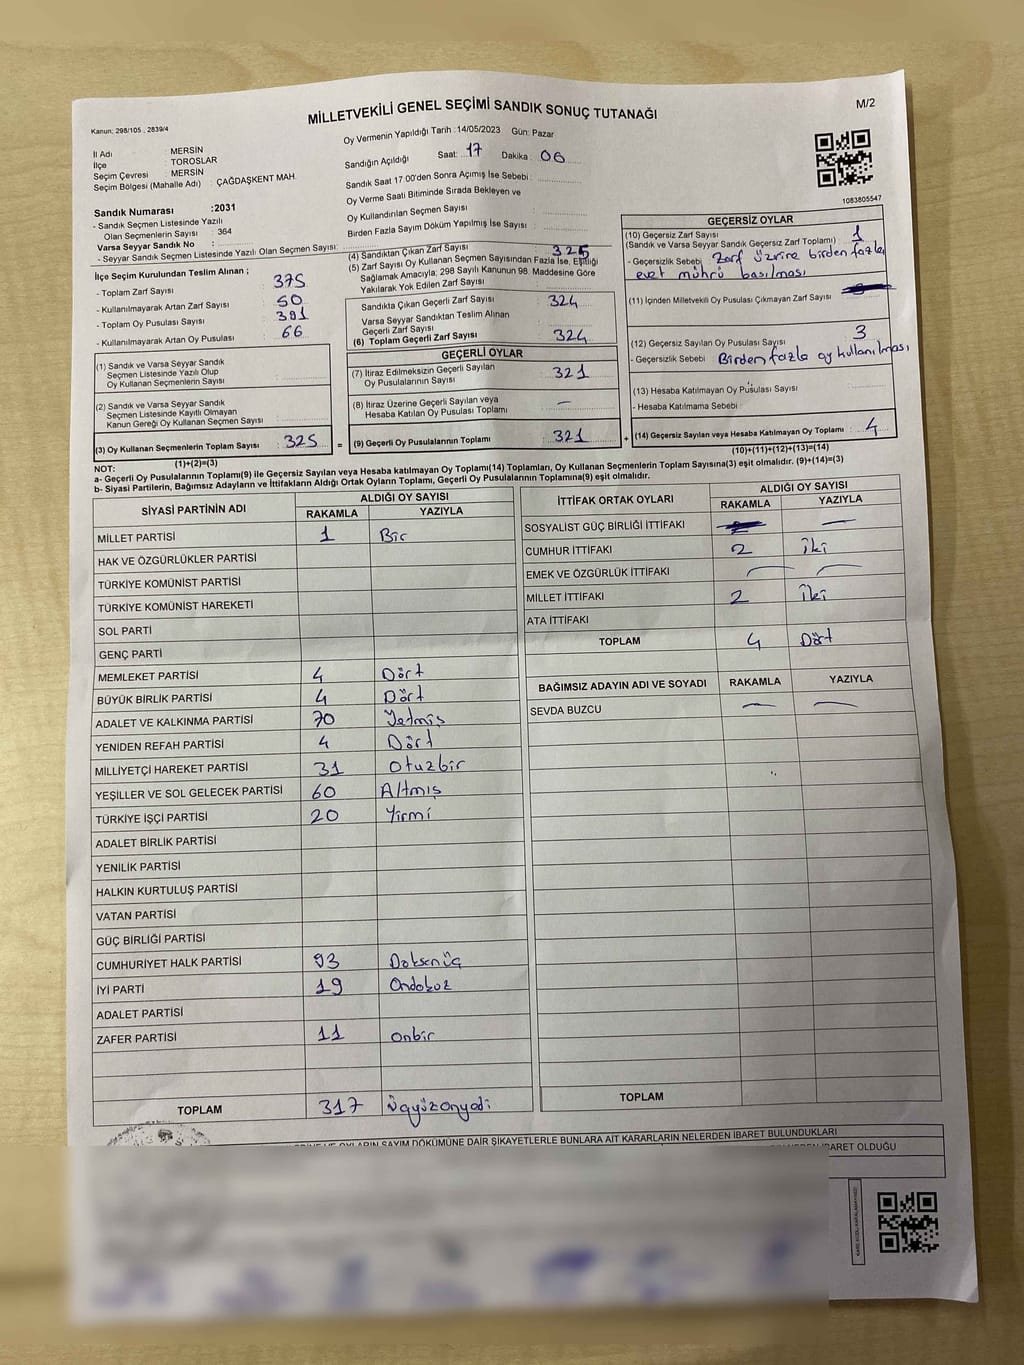 MİLLETVEKİLİ GENEL SEÇİMİ SANDIK SONUÇ TUTANAĞI
M/2
Kanun: 298/105 , 2839/4
Oy Vermenin Yapıldığı Tarih :14/05/2023 Gün: Pazar
İl Adı : MERSİN
İlçe : TOROSLAR
Seçim Çevresi : MERSİN
Seçim Bölgesi (Mahalle Adı) : ÇAĞDAŞKENT MAH.
Sandığın Açıldığı Saat: 17 Dakika : 06
Sandık Saat 17:00'den Sonra Açımış İse Sebebi :
Oy Verme Saati Bitiminde Sırada Bekleyen ve
Oy Kullandırılan Seçmen Sayısı :
Birden Fazla Sayım Döküm Yapılmış İse Sayısı :
1083805547
Sandık Numarası :2031
- Sandık Seçmen Listesinde Yazılı
Olan Seçmenlerin Sayısı : 364
Varsa Seyyar Sandık No :
- Seyyar Sandık Seçmen Listesinde Yazılı Olan Seçmen Sayısı:
İlçe Seçim Kurulundan Teslim Alınan ;
- Toplam Zarf Sayısı : 375
- Kullanılmayarak Artan Zarf Sayısı : 50
- Toplam Oy Pusulası Sayısı : 391
- Kullanılmayarak Artan Oy Pusulası : 66
(1) Sandık ve Varsa Seyyar Sandık
Seçmen Listesinde Yazılı Olup
Oy Kullanan Seçmenlerin Sayısı :
(2) Sandık ve Varsa Seyyar Sandık
Seçmen Listesinde Kayıtlı Olmayan
Kanun Gereği Oy Kullanan Seçmen Sayısı :
(3) Oy Kullanan Seçmenlerin Toplam Sayısı : 325
(1)+(2)=(3)
(4) Sandıktan Çıkan Zarf Sayısı : 325
(5) Zarf Sayısı Oy Kullanan Seçmen Sayısından Fazla İse, Eşitliği
Sağlamak Amacıyla; 298 Sayılı Kanunun 98. Maddesine Göre
Yakılarak Yok Edilen Zarf Sayısı :
Sandıkta Çıkan Geçerli Zarf Sayısı : 324
Varsa Seyyar Sandıktan Teslim Alınan
Geçerli Zarf Sayısı :
(6) Toplam Geçerli Zarf Sayısı : 324
GEÇERLİ OYLAR
(7) İtiraz Edilmeksizin Geçerli Sayılan
Oy Pusulalarının Sayısı : 321
(8) İtiraz Üzerine Geçerli Sayılan veya
Hesaba Katılan Oy Pusulası Toplamı : —
= (9) Geçerli Oy Pusulalarının Toplamı : 321
GEÇERSİZ OYLAR
(10) Geçersiz Zarf Sayısı
(Sandık ve Varsa Seyyar Sandık Geçersiz Zarf Toplamı) : 1
- Geçersizlik Sebebi : Zarf üzerine birden fazla
evet mührü basılması
(11) İçinden Milletvekili Oy Pusulası Çıkmayan Zarf Sayısı :
(12) Geçersiz Sayılan Oy Pusulası Sayısı : 3
- Geçersizlik Sebebi : Birden fazla oy kullanılması
(13) Hesaba Katılmayan Oy Pusulası Sayısı :
- Hesaba Katılmama Sebebi :
+ (14) Geçersiz Sayılan veya Hesaba Katılmayan Oy Toplamı : 4
(10)+(11)+(12)+(13)=(14)
NOT:
a- Geçerli Oy Pusulalarının Toplamı(9) ile Geçersiz Sayılan veya Hesaba katılmayan Oy Toplamı(14) Toplamları, Oy Kullanan Seçmenlerin Toplam Sayısına(3) eşit olmalıdır. (9)+(14)=(3)
b- Siyasi Partilerin, Bağımsız Adayların ve İttifakların Aldığı Ortak Oyların Toplamı, Geçerli Oy Pusulalarının Toplamına(9) eşit olmalıdır.
SİYASİ PARTİNİN ADI
ALDIĞI OY SAYISI
RAKAMLA YAZIYLA
MİLLET PARTİSİ 1 Bir
HAK VE ÖZGÜRLÜKLER PARTİSİ
TÜRKİYE KOMÜNİST PARTİSİ
TÜRKİYE KOMÜNİST HAREKETİ
SOL PARTİ
GENÇ PARTİ
MEMLEKET PARTİSİ 4 Dört
BÜYÜK BİRLİK PARTİSİ 4 Dört
ADALET VE KALKINMA PARTİSİ 70 Yetmiş
YENİDEN REFAH PARTİSİ 4 Dört
MİLLİYETÇİ HAREKET PARTİSİ 31 Otuzbir
YEŞİLLER VE SOL GELECEK PARTİSİ 60 Altmış
TÜRKİYE İŞÇİ PARTİSİ 20 Yirmi
ADALET BİRLİK PARTİSİ
YENİLİK PARTİSİ
HALKIN KURTULUŞ PARTİSİ
VATAN PARTİSİ
GÜÇ BİRLİĞİ PARTİSİ
CUMHURİYET HALK PARTİSİ 93 Doksanüç
İYİ PARTİ 19 Ondokuz
ADALET PARTİSİ
ZAFER PARTİSİ 11 onbir
TOPLAM 317 üçyüzonyedi
İTTİFAK ORTAK OYLARI
ALDIĞI OY SAYISI
RAKAMLA YAZIYLA
SOSYALİST GÜÇ BİRLİĞİ İTTİFAKI —
CUMHUR İTTİFAKI 2 İki
EMEK VE ÖZGÜRLÜK İTTİFAKI — —
MİLLET İTTİFAKI 2 İki
ATA İTTİFAKI
TOPLAM 4 Dört
BAĞIMSIZ ADAYIN ADI VE SOYADI RAKAMLA YAZIYLA
SEVDA BUZCU — —
TOPLAM
OYLARIN SAYIM DÖKÜMÜNE DAİR ŞİKAYETLERLE BUNLARA AİT KARARLARIN NELERDEN İBARET BULUNDUKLARI
İBARET OLDUĞU